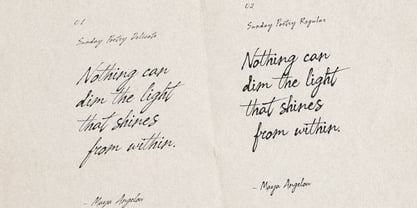 01
Sunday Poetry Delicate
Nothing can
dim the light
that shines
from within.
- Maya Angelou
02
Sunday Poetry Regular
Nothing can
dim the light
that shines
from within.
- Maya Angelou